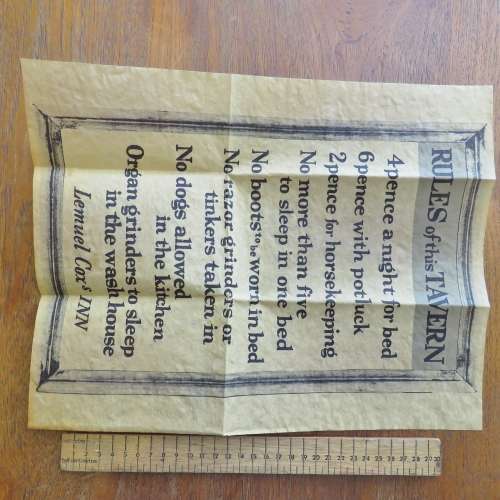 RULES of this TAVERN
4 pence a night for bed
6 pence with potluck
2 pence for horsekeeping
No more than five
to sleep in one bed
No boots to be worn in bed
No razor grinders or
tinkers taken in
No dogs allowed
in the kitchen
Organ grinders to sleep
in the wash house
Lemuel Cox's INN
3 4 5 6 7 8 9 10 11 12 13 14 15 16 17 18 19 20 21 22 23 24 25 26 27 28 29 30